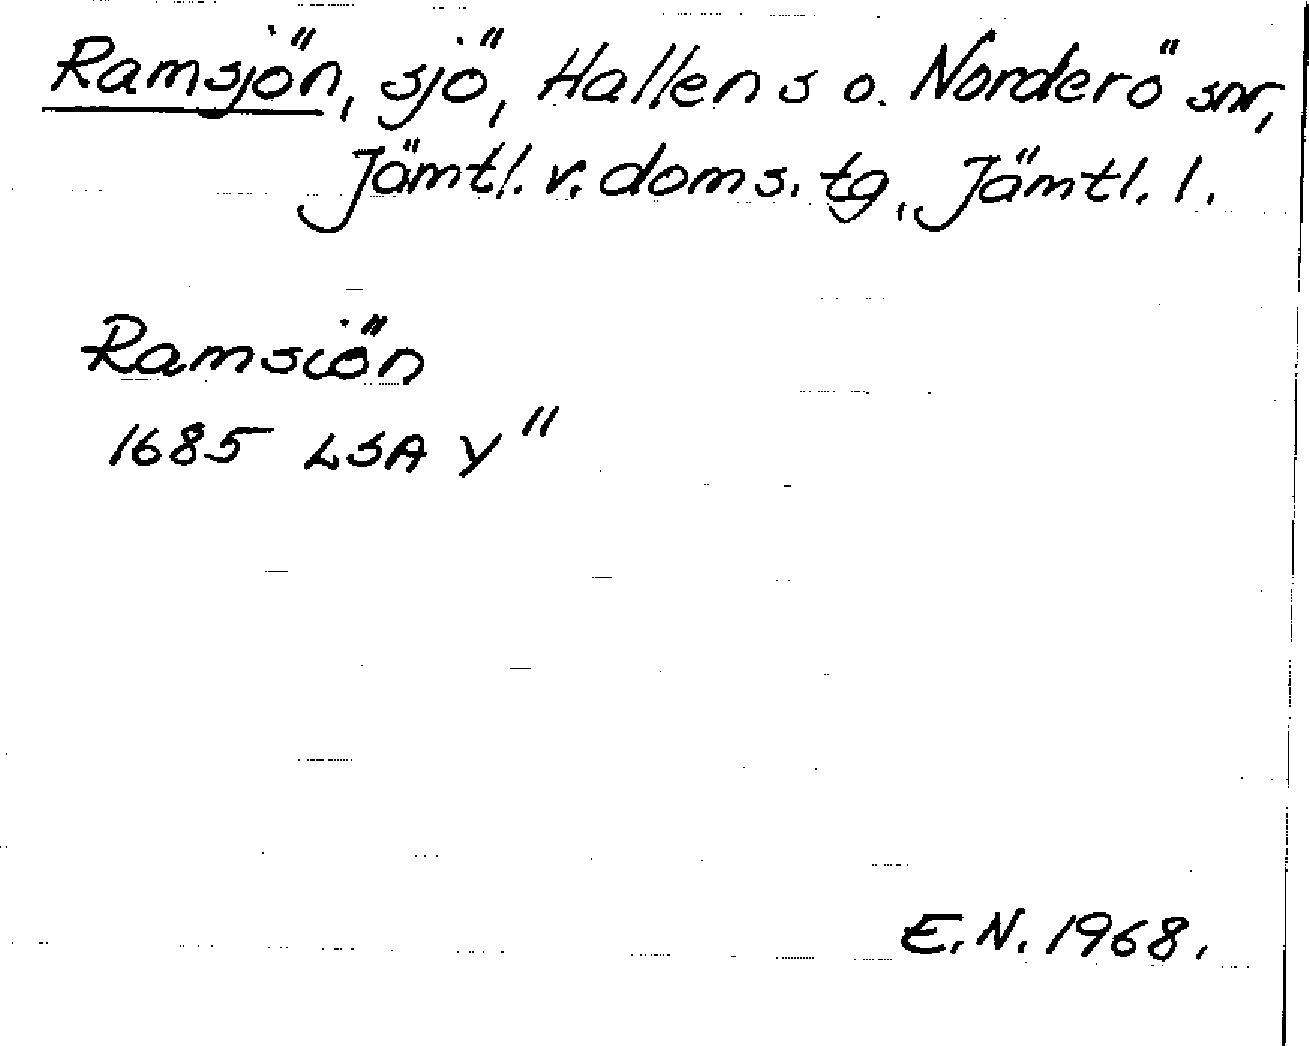 Ramsjön, sjö, Hallens o. Norderö snr,
Jämtl. v. doms. tg, Jämtl. l.
Ramsiön
1685 LSA Y"
E.N. 1968.